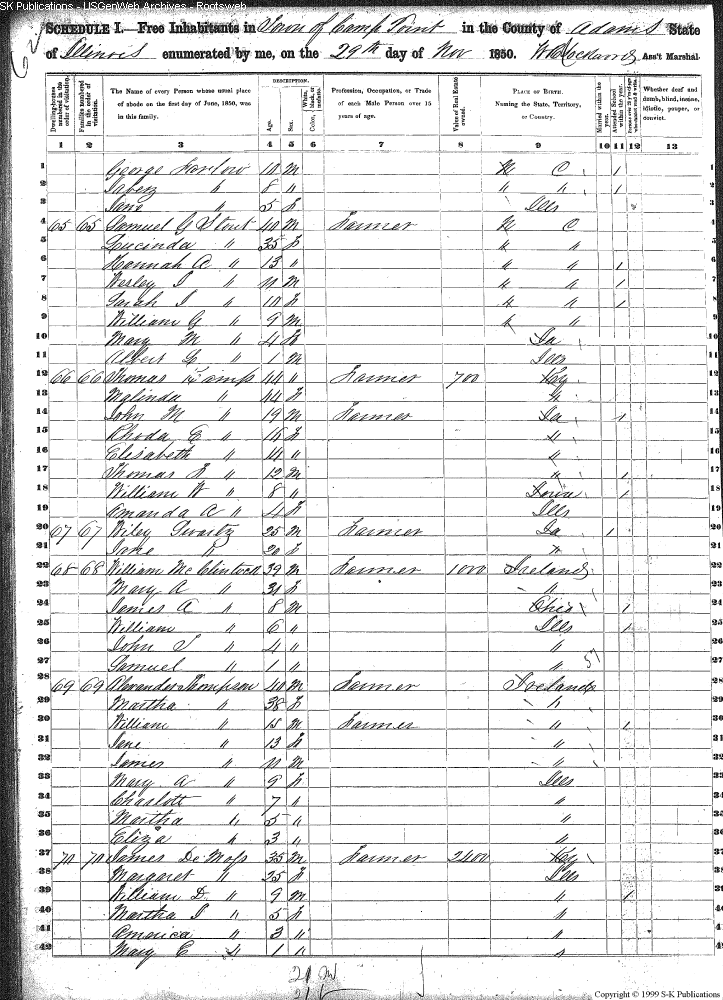 SK Publications - USGenWeb Archives - Rootsweb
SCHEDULE I.—Free Inhabitants in Town of Camp Point in the County of Adams State
of Illinois enumerated by me, on the 29th day of Nov 1850. Ass't Marshal.
Dwelling-houses numbered in the order of visitation.
Families numbered in the order of visitation.
The Name of every Person whose usual place of abode on the first day of June, 1850, was in this family.
DESCRIPTION.
Age.
Sex.
Color, White, black, or mulatto.
Profession, Occupation, or Trade of each Male Person over 15 years of age.
Value of Real Estate owned.
PLACE OF BIRTH.
Naming the State, Territory, or Country.
Married within the year.
Attended School within the year.
Whether deaf and dumb, blind, insane, idiotic, pauper, or convict.
1 2 3 4 5 6 7 8 9 10 11 12 13
1 George 10 M N C / 1
2 " 8 " " " / 2
3 Jane " 5 F Ills 3
4 65 65 Samuel G Stout 40 M Farmer N C 4
5 Lucinda " 35 F " " 5
6 Hannah A " 13 " " " / 6
7 Wesley " 11 M " " / 7
8 Sarah " 10 F " " / 8
9 William G " 9 M " " 9
10 Mary M " 4 F Ia 10
11 Albert " 1 M Ills 11
12 66 66 Thomas 44 " Farmer 700 Key 12
13 Malinda " 44 F " 13
14 John M " 19 M Farmer Ia / 14
15 Rhoda E " 16 F " 15
16 Elisabeth " 14 " " 16
17 Thomas " 12 M " / 17
18 William W " 8 " Iowa / 18
19 Amanda A " 4 F Ills 19
20 67 67 Wiley Swartz 25 M Farmer Ia / 20
21 Jane " 20 F " 21
22 68 68 William McClintock 39 M Farmer 1000 Ireland 22
23 Mary A " 31 F " 23
24 James A " 8 M Ohio / 24
25 William " 6 " Ills / 25
26 John S " 4 " " 26
27 Samuel " 1 " " 27
28 69 69 Alexander Thompson 40 M Farmer Ireland 28
29 Martha " 38 F " 29
30 William " 15 M Farmer " / 30
31 Jane " 13 F " 31
32 James " 11 M " 32
33 Mary A " 9 F Ills 33
34 Charlott " 7 " " 34
35 Martha " 5 " " 35
36 Eliza " 3 " " 36
37 70 70 James De Moss 35 M Farmer 2400 Key 37
38 Margaret " 25 F Ills 38
39 William D. " 9 M " / 39
40 Martha " 5 F " 40
41 America " 3 " " 41
42 Mary E " 1 " " 42
Copyright © 1999 S-K Publications